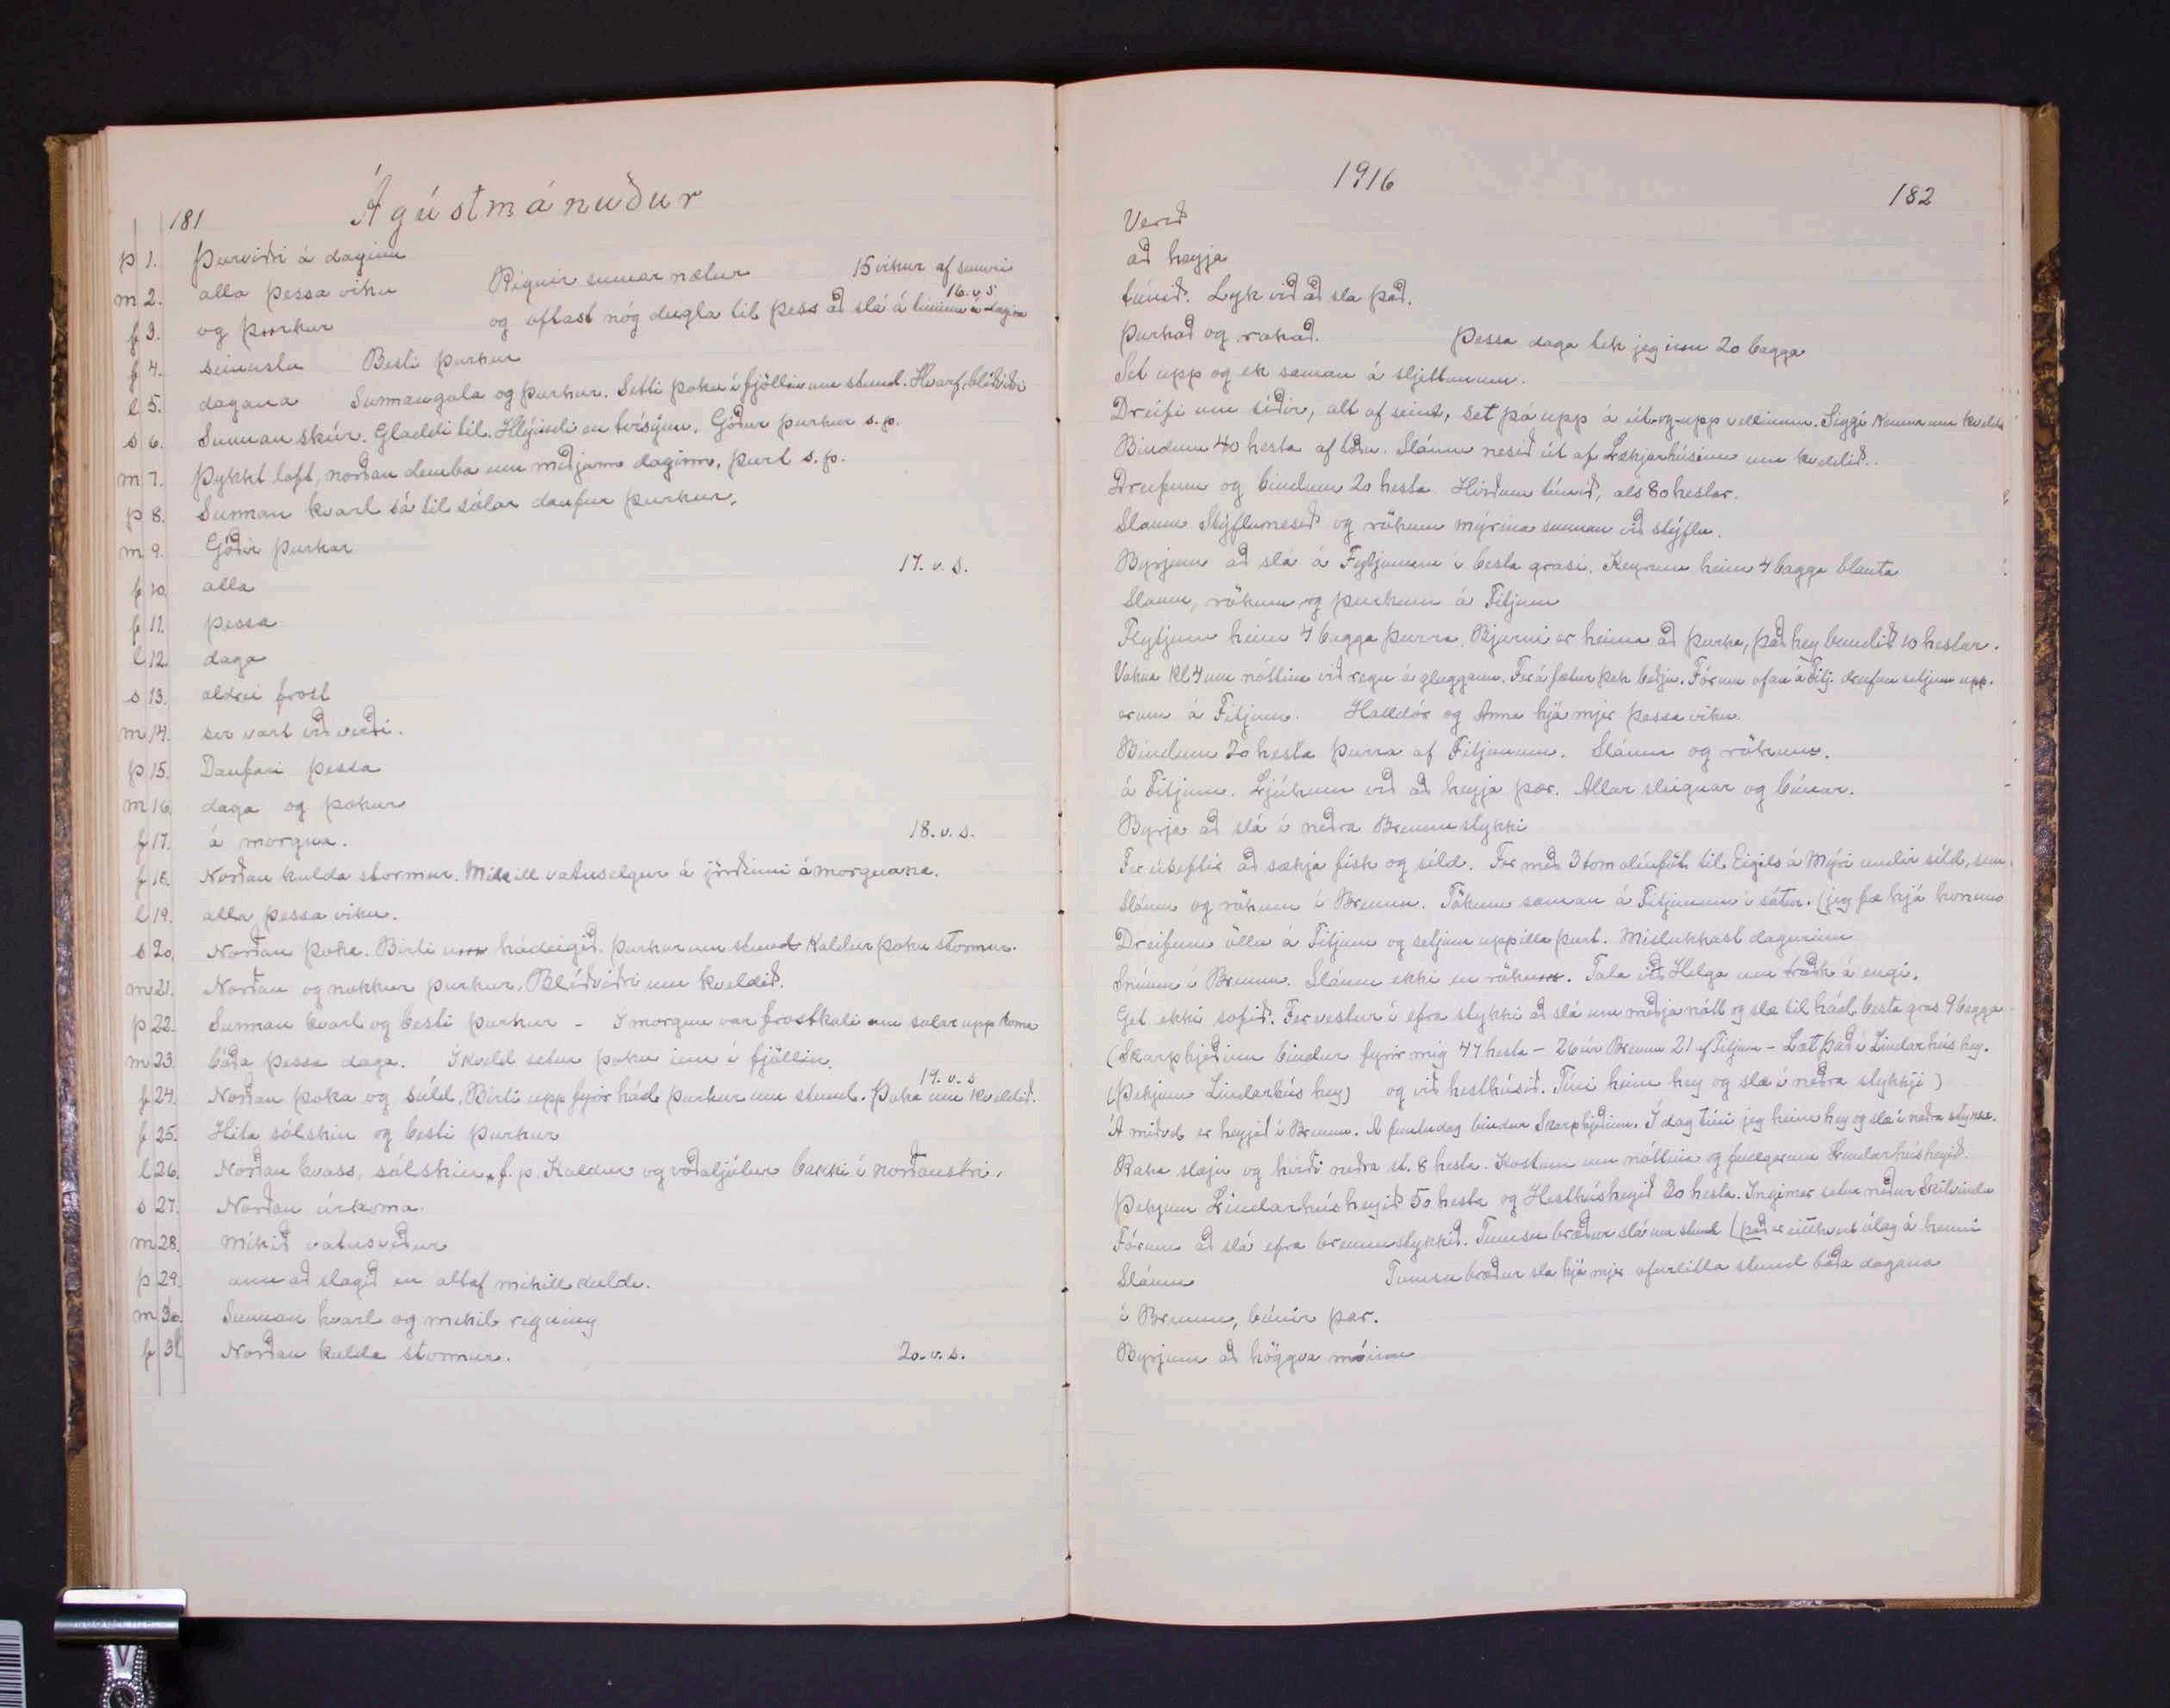 181
Ágústmánuður
þ 1. Þurviðri á daginn
m 2. alla þessa viku Rignir sumar nætur 15 vikur af sumri
f 3. og þurkur og oftast nóg dugla til þess að slá á túninu á daginn 16. v s
f 4. seinustu Besti þurkur
l 5. dagana Sunnangola og þurkur. Setti þoku í fjöllin um stund. Hvarf, blíðviðri
s 6. Sunnan skúr. Gladdi til. Hlýindi en tvísýnn. Góður þurkur s. p.
m 7. Þykkt loft, norðan demba um miðjann daginn, þurt s. p.
þ 8. Sunnan kvart sá til sólar daufur þurkur.
m 9. Góðir þurkar
f 10. alla 17. v. s.
f 11. þessa
l 12. daga
s 13. aldrei frost
m 14. svo vart við verði.
þ 15. Daufari þessa
m 16. daga og þokur
f 17. á morgna. 18. v. s.
f 18. Norðan kulda stormur. Mikill vatnselgur á jörðinni á morgnana.
l 19. alla þessa viku.
s 20. Norðan þoka. Birti um hádeigið. þurkur um stund Kaldur þoku stormur.
m 21. Norðan og nokkur þurkur. Blíðviðri um kveldið.
þ 22. Sunnan kvart og besti þurkur - Í morgun var frostkali um sólar upp koma
m 23. báða þessa daga. Í kveld setur þoku inn í fjöllin.
f 24. Norðan þoka og súld. Birti upp fyrir hád. þurkur um stund. Þoka um kveldið. 19. v. s
f 25. Hita sólskin og besti þurkur
l 26. Norðan kvass, sólskin f. p. Kaldur og voðaljótur bakki í norðaustri.
s 27. Norðan úrkoma.
m 28. mikið vatnsveður
þ 29. ann að slagið en altaf mikill kuldi.
m 30. Sunnan kvart og mikil rigning
f 31. Norðan kulda stormur. 20. v. s.
1916
182
Verið
að heyja
túnið. Lyk við að slá það.
Þurkað og rakað. Þessa daga tek jeg inn 20 bagga
Set upp og ek saman á sljettunum.
Dreifi um síðir, alt of seint, set þá upp á út-og-upp vellinum. Siggi Kemur um kveldið
Bindum 40 hesta af töðu. Sláum nesið út af Lækjarhúsinu um kveldið.
Dreifum og bindum 20 hesta. Hirðum túnið, als 80 hestar.
Sláum Stýflunesið og rökum mýrina sunnan við stýflu.
Byrjum að slá á Fytjunum í besta grasi. Keyrum heim 4 bagga blauta
Sláum, rökum og þurkum á Fitjum
Flytjum heim 4 bagga þurra. Bjarni er heima að þurka, það hey bundið 10 hestar.
Vakna kl 4 um nóttina við regn á gluggann. Fer á fætur þek beðju. Fórum ofan á Fitj. dreifum setjum upp.
erum á Fitjum. Halldór og Anna hjá mjer þessa viku.
Bindum 20 hesta þurra af Fitjunum. Sláum og rökum.
á Fitjum. Ljúkum við að heyja þar. Allar sleignar og búnar.
Byrja að slá í neðra Brunnstykki
Fer úteftir að sækja fisk og síld. Fer með 3 tom olíuföt til Eigils á Mýri undir síld, sem
Sláum og rökum í Brunn. Tökum saman á Fitjunum í sátur. (jeg fæ hjá honum
Dreifum öllu á Fitjum og setjum upp illa þurt. Mislukkast dagurinn
Snúum í Brunn. Sláum ekki en rökum. Tala við Helga um træk á engi.
Get ekki sofið. Fer vestur í efra stykki að slá um miðja nótt og slæ til hád. besta gras 9 bagga
(Skarphjeðinn bindur fyrir mig 47 hesta - 26 úr Brunn 21 af Fitjum - Læt það í Lindarhús hey.
(Þekjum Lindarhús hey) og við hesthúsið. Tíni heim hey og slæ í neðra stykkji)
Á miðvd er heyjað í Brunn. Á fimtudag bindur Skarphjeðinn. Í dag tíni jeg heim hey og slæ í neðra stykke.
Raka slæju og hirði neðra st. 8 hesta. Köstum um nóttina og fullgerum Lindarhúsheyið.
Þekjum Lindarhúsheyið 50 hesta og Hesthúsheyið 30 hesta. Ingimar setur niður Skilvindu
Fórum að slá efra brunnstykkið. Tunsu bræður slá um stund (það er eitthvert ólag á henni
Sláum Tunsu bræður slá hjá mjer ofurlitla stund báða dagana
í Brunn, búnir þar.
Byrjum að höggva móinn